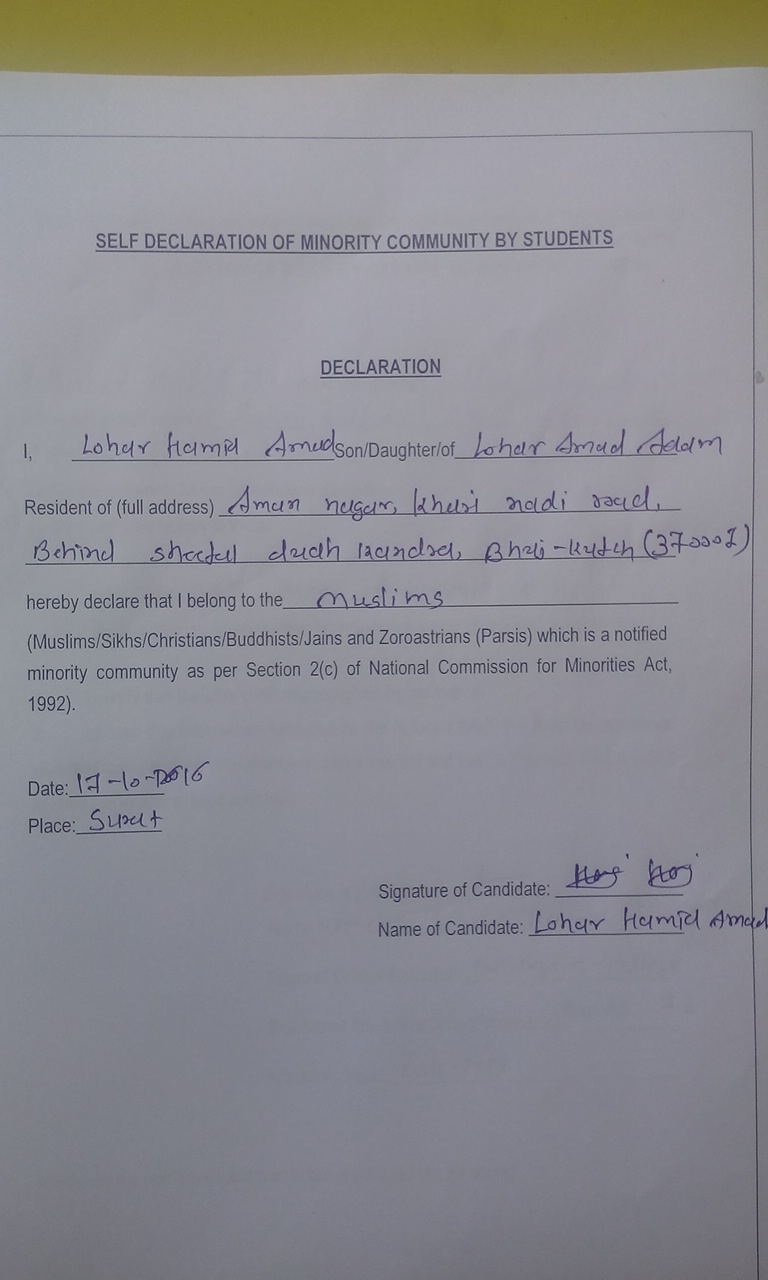 SELF DECLARATION OF MINORITY COMMUNITY BY STUDENTS
DECLARATION
I, Lohar Hamid Amad Son/Daughter/of Lohar Amad Adam
Resident of (full address) Aman nagar, khari nadi road,
Behind sheetal dudh kendra, Bhuj-Kutch (370001)
hereby declare that I belong to the muslims
(Muslims/Sikhs/Christians/Buddhists/Jains and Zoroastrians (Parsis) which is a notified
minority community as per Section 2(c) of National Commission for Minorities Act,
1992).
Date: 17-10-2016
Place: Surat
Signature of Candidate:
Name of Candidate: Lohar Hamid Amad